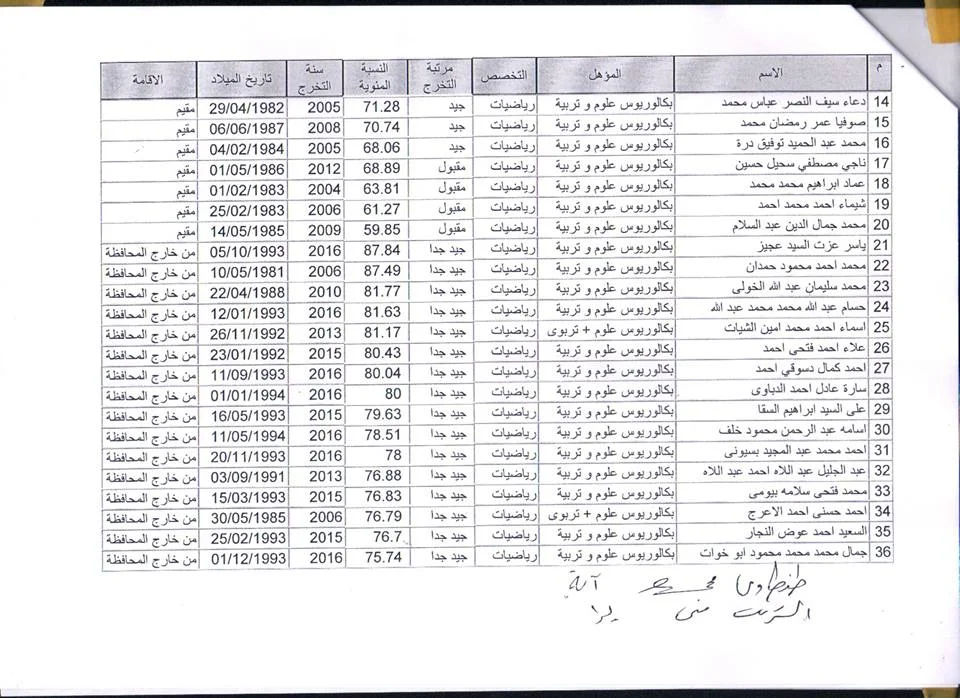 م الاسم المؤهل التخصص مرتبة التخرج النسبة المئوية سنة التخرج تاريخ الميلاد الاقامة
14 دعاء سيف النصر عباس محمد بكالوريوس علوم و تربية رياضيات جيد 71.28 2005 29/04/1982 مقيم
15 صوفيا عمر رمضان محمد بكالوريوس علوم و تربية رياضيات جيد 70.74 2008 06/06/1987 مقيم
16 محمد عبد الحميد توفيق درة بكالوريوس علوم و تربية رياضيات جيد 68.06 2005 04/02/1984 مقيم
17 ناجي مصطفي سحيل حسين بكالوريوس علوم و تربية رياضيات مقبول 68.89 2012 01/05/1986 مقيم
18 عماد ابراهيم محمد محمد بكالوريوس علوم و تربية رياضيات مقبول 63.81 2004 01/02/1983 مقيم
19 شيماء احمد محمد احمد بكالوريوس علوم و تربية رياضيات مقبول 61.27 2006 25/02/1983 مقيم
20 محمد جمال الدين عبد السلام بكالوريوس علوم و تربية رياضيات مقبول 59.85 2009 14/05/1985 مقيم
21 ياسر عزت السيد عجيز بكالوريوس علوم و تربية رياضيات جيد جدا 87.84 2016 05/10/1993 من خارج المحافظة
22 محمد احمد محمود حمدان بكالوريوس علوم و تربية رياضيات جيد جدا 87.49 2006 10/05/1981 من خارج المحافظة
23 محمد سليمان عبد الله الخولى بكالوريوس علوم و تربية رياضيات جيد جدا 81.77 2010 22/04/1988 من خارج المحافظة
24 حسام عبد الله محمد محمد عبد الله بكالوريوس علوم و تربية رياضيات جيد جدا 81.63 2016 12/01/1993 من خارج المحافظة
25 اسماء احمد محمد امين الشيات بكالوريوس علوم + تربوى رياضيات جيد جدا 81.17 2013 26/11/1992 من خارج المحافظة
26 علاء احمد فتحى احمد بكالوريوس علوم و تربية رياضيات جيد جدا 80.43 2015 23/01/1992 من خارج المحافظة
27 احمد كمال دسوقي احمد بكالوريوس علوم و تربية رياضيات جيد جدا 80.04 2016 11/09/1993 من خارج المحافظة
28 سارة عادل احمد الدباوى بكالوريوس علوم و تربية رياضيات جيد جدا 80 2016 01/01/1994 من خارج المحافظة
29 على السيد ابراهيم السقا بكالوريوس علوم و تربية رياضيات جيد جدا 79.63 2015 16/05/1993 من خارج المحافظة
30 اسامه عبد الرحمن محمود خلف بكالوريوس علوم و تربية رياضيات جيد جدا 78.51 2016 11/05/1994 من خارج المحافظة
31 احمد محمد عبد المجيد بسيونى بكالوريوس علوم و تربية رياضيات جيد جدا 78 2016 20/11/1993 من خارج المحافظة
32 عبد الجليل عبد اللاه احمد عبد اللاه بكالوريوس علوم و تربية رياضيات جيد جدا 76.88 2013 03/09/1991 من خارج المحافظة
33 محمد فتحى سلامه بيومى بكالوريوس علوم و تربية رياضيات جيد جدا 76.83 2015 15/03/1993 من خارج المحافظة
34 احمد حسنى احمد الاعرج بكالوريوس علوم + تربوى رياضيات جيد جدا 76.79 2006 30/05/1985 من خارج المحافظة
35 السعيد احمد عوض النجار بكالوريوس علوم و تربية رياضيات جيد جدا 76.7 2015 25/02/1993 من خارج المحافظة
36 جمال محمد محمد محمود ابو خوات بكالوريوس علوم و تربية رياضيات جيد جدا 75.74 2016 01/12/1993 من خارج المحافظة
طنطاوى آية
منى